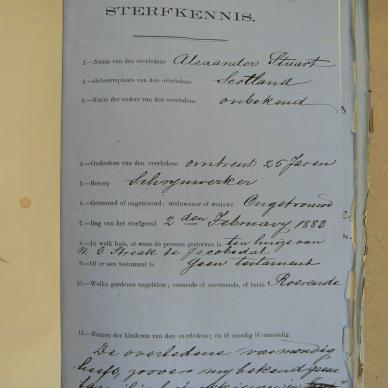 STERFKENNIS.
1.—Naam van den overledene Alexander Stuart
2.—Geboorteplaats van den overledene Scotland
3.—Namen der ouders van den overledene onbekend
4.—Ouderdom van den overledene omtrent 25 Jaren
5.—Beroep Schrynwerker
6.—Getrouwd of ongetrouwd; weduwnaar of weduwe Ongetrouwd
7.—Dag van het sterfgeval 2 den February 1883
8.—In welk huis, of waar de persoon gestorven is ten huize van
W. G. Streak te Jacobsdal
9.—Of er een testament is Geen testament
10.—Welke goederen nagelaten; roerende of onroerende, of beide Roerende
11.—Namen der kinderen van den overledene; en id mondig of onmondig
De overledene was mondig
heeft, zoover my bekend geene